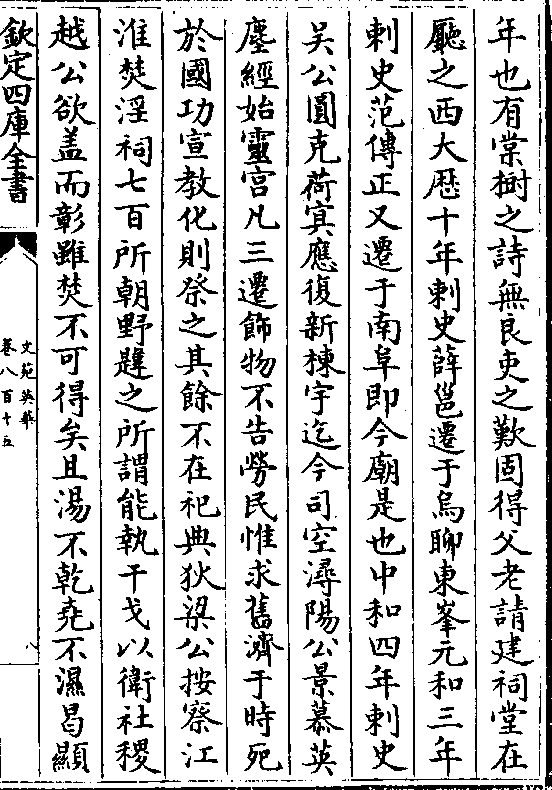 年也有棠樹之詩無良吏之歎固得父老請建祠堂在
廳之西大歴十年刺史薛邕遷于烏聊東峯元和三年
刺史范傳正又遷于南阜即今廟是也中和四年刺史
吴公圓克荷寘應復新棟宇迄今司空潯陽公景慕英
塵經始靈宫凡三遷飾物不告勞民惟求舊濟于時死
於國功宣教化則祭之其餘不在祀典狄梁公按察江
淮焚淫祠七百所朝野韙之所謂能執干戈以衛社稷
越公欲盖而彰雖焚不可得矣且湯不乾堯不濕曷顯
欽定四庫全書
文苑英華
卷八百十五
八